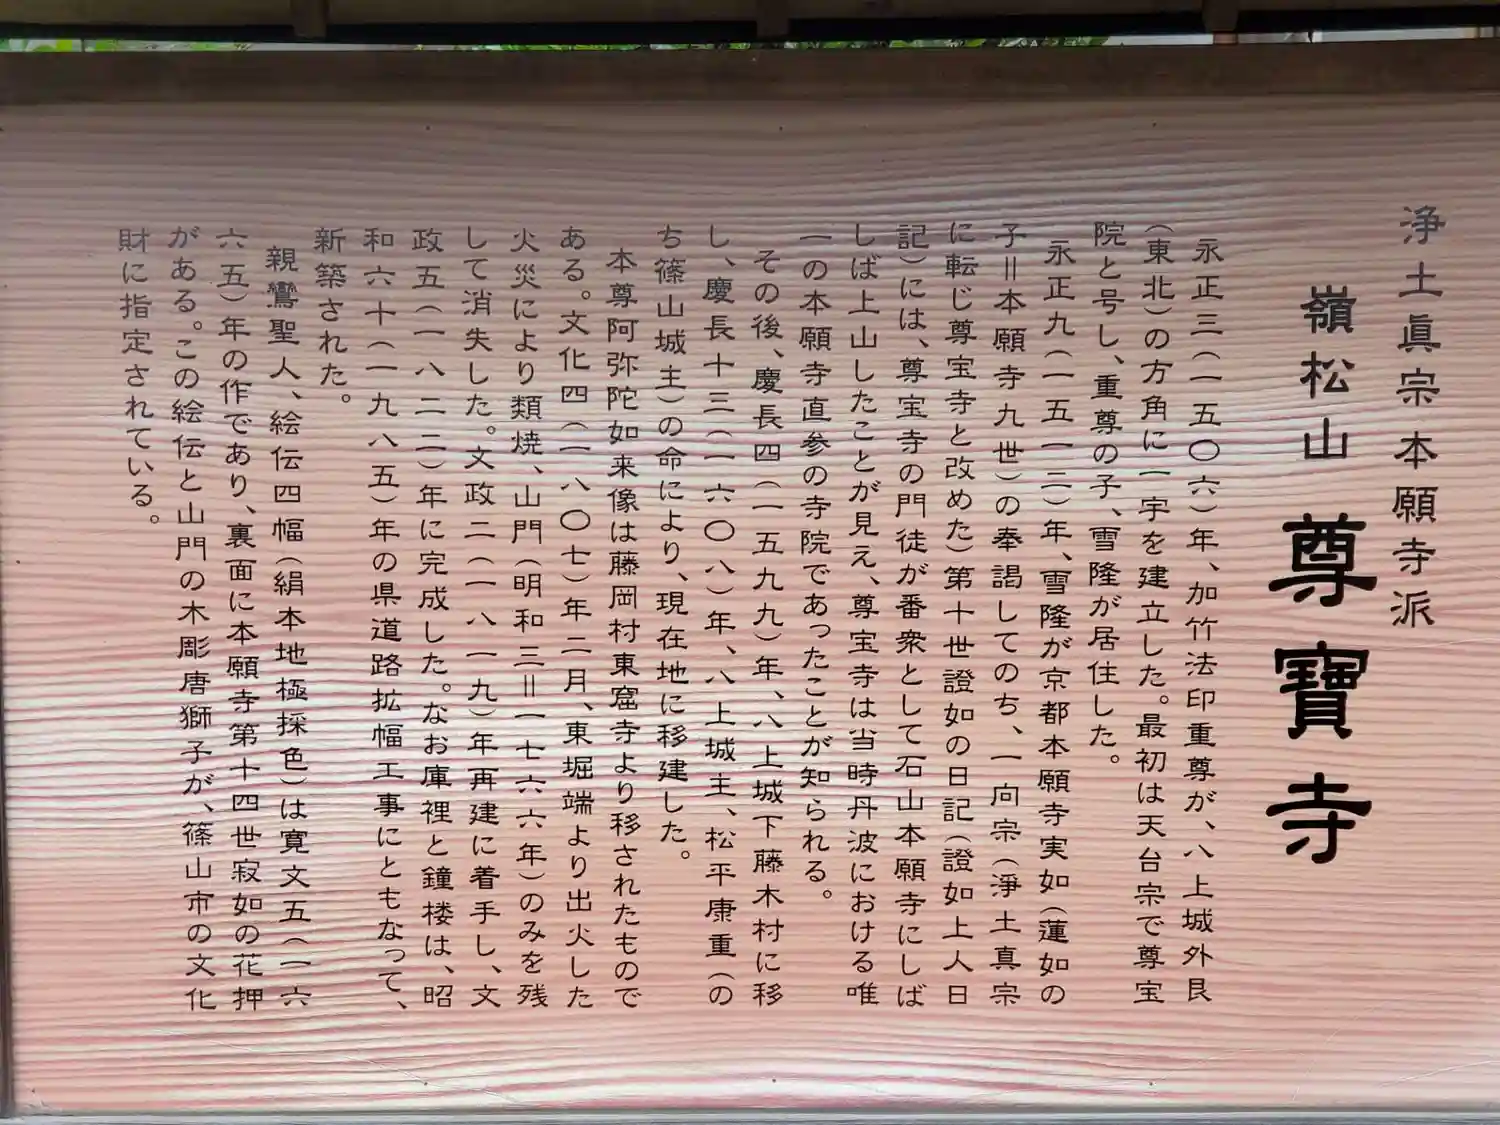 浄土眞宗本願寺派
嶺松山
尊寳寺
永正三(一五〇六)年、加竹法印重尊が、八上城外艮
(東北)の方角に一宇を建立した。最初は天台宗で尊宝
院と号し、重尊の子、雪隆が居住した。
永正九(一五一二)年、雪隆が京都本願寺実如(蓮如の
子＝本願寺九世)の奉謁してのち、一向宗(淨土真宗
に転じ尊宝寺と改めた)第十世證如の日記(證如上人日
記)には、尊宝寺の門徒が番衆として石山本願寺にしば
しば上山したことが見え、尊宝寺は当時丹波における唯
一の本願寺直参の寺院であったことが知られる。
その後、慶長四(一五九九)年、八上城下藤木村に移
し、慶長十三(一六〇八)年、八上城主、松平康重(の
ち篠山城主)の命により、現在地に移建した。
本尊阿弥陀如来像は藤岡村東窟寺より移されたもので
ある。文化四(一八〇七)年二月、東堀端より出火した
火災により類焼、山門(明和三＝一七六六年)のみを残
して消失した。文政二(一八一九)年再建に着手し、文
政五(一八二二)年に完成した。なお庫裡と鐘楼は、昭
和六十(一九八五)年の県道路拡幅工事にともなって、
新築された。
親鸞聖人、絵伝四幅(絹本地極採色)は寛文五(一六
六五)年の作であり、裏面に本願寺第十四世寂如の花押
がある。この絵伝と山門の木彫唐獅子が、篠山市の文化
財に指定されている。